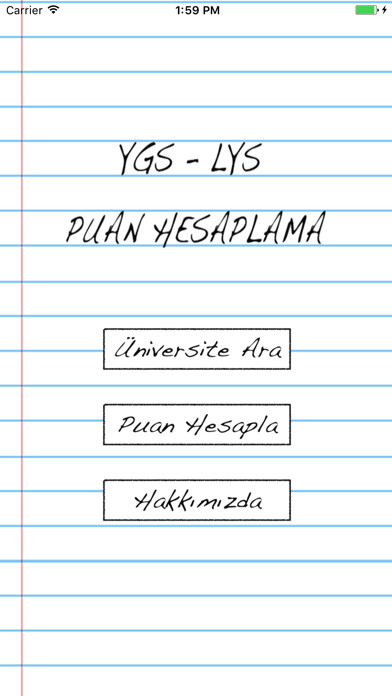 Carrier 1:59 PM
YGS - LYS
PUAN HESAPLAMA
Üniversite Ara
Puan Hesapla
Hakkımızda